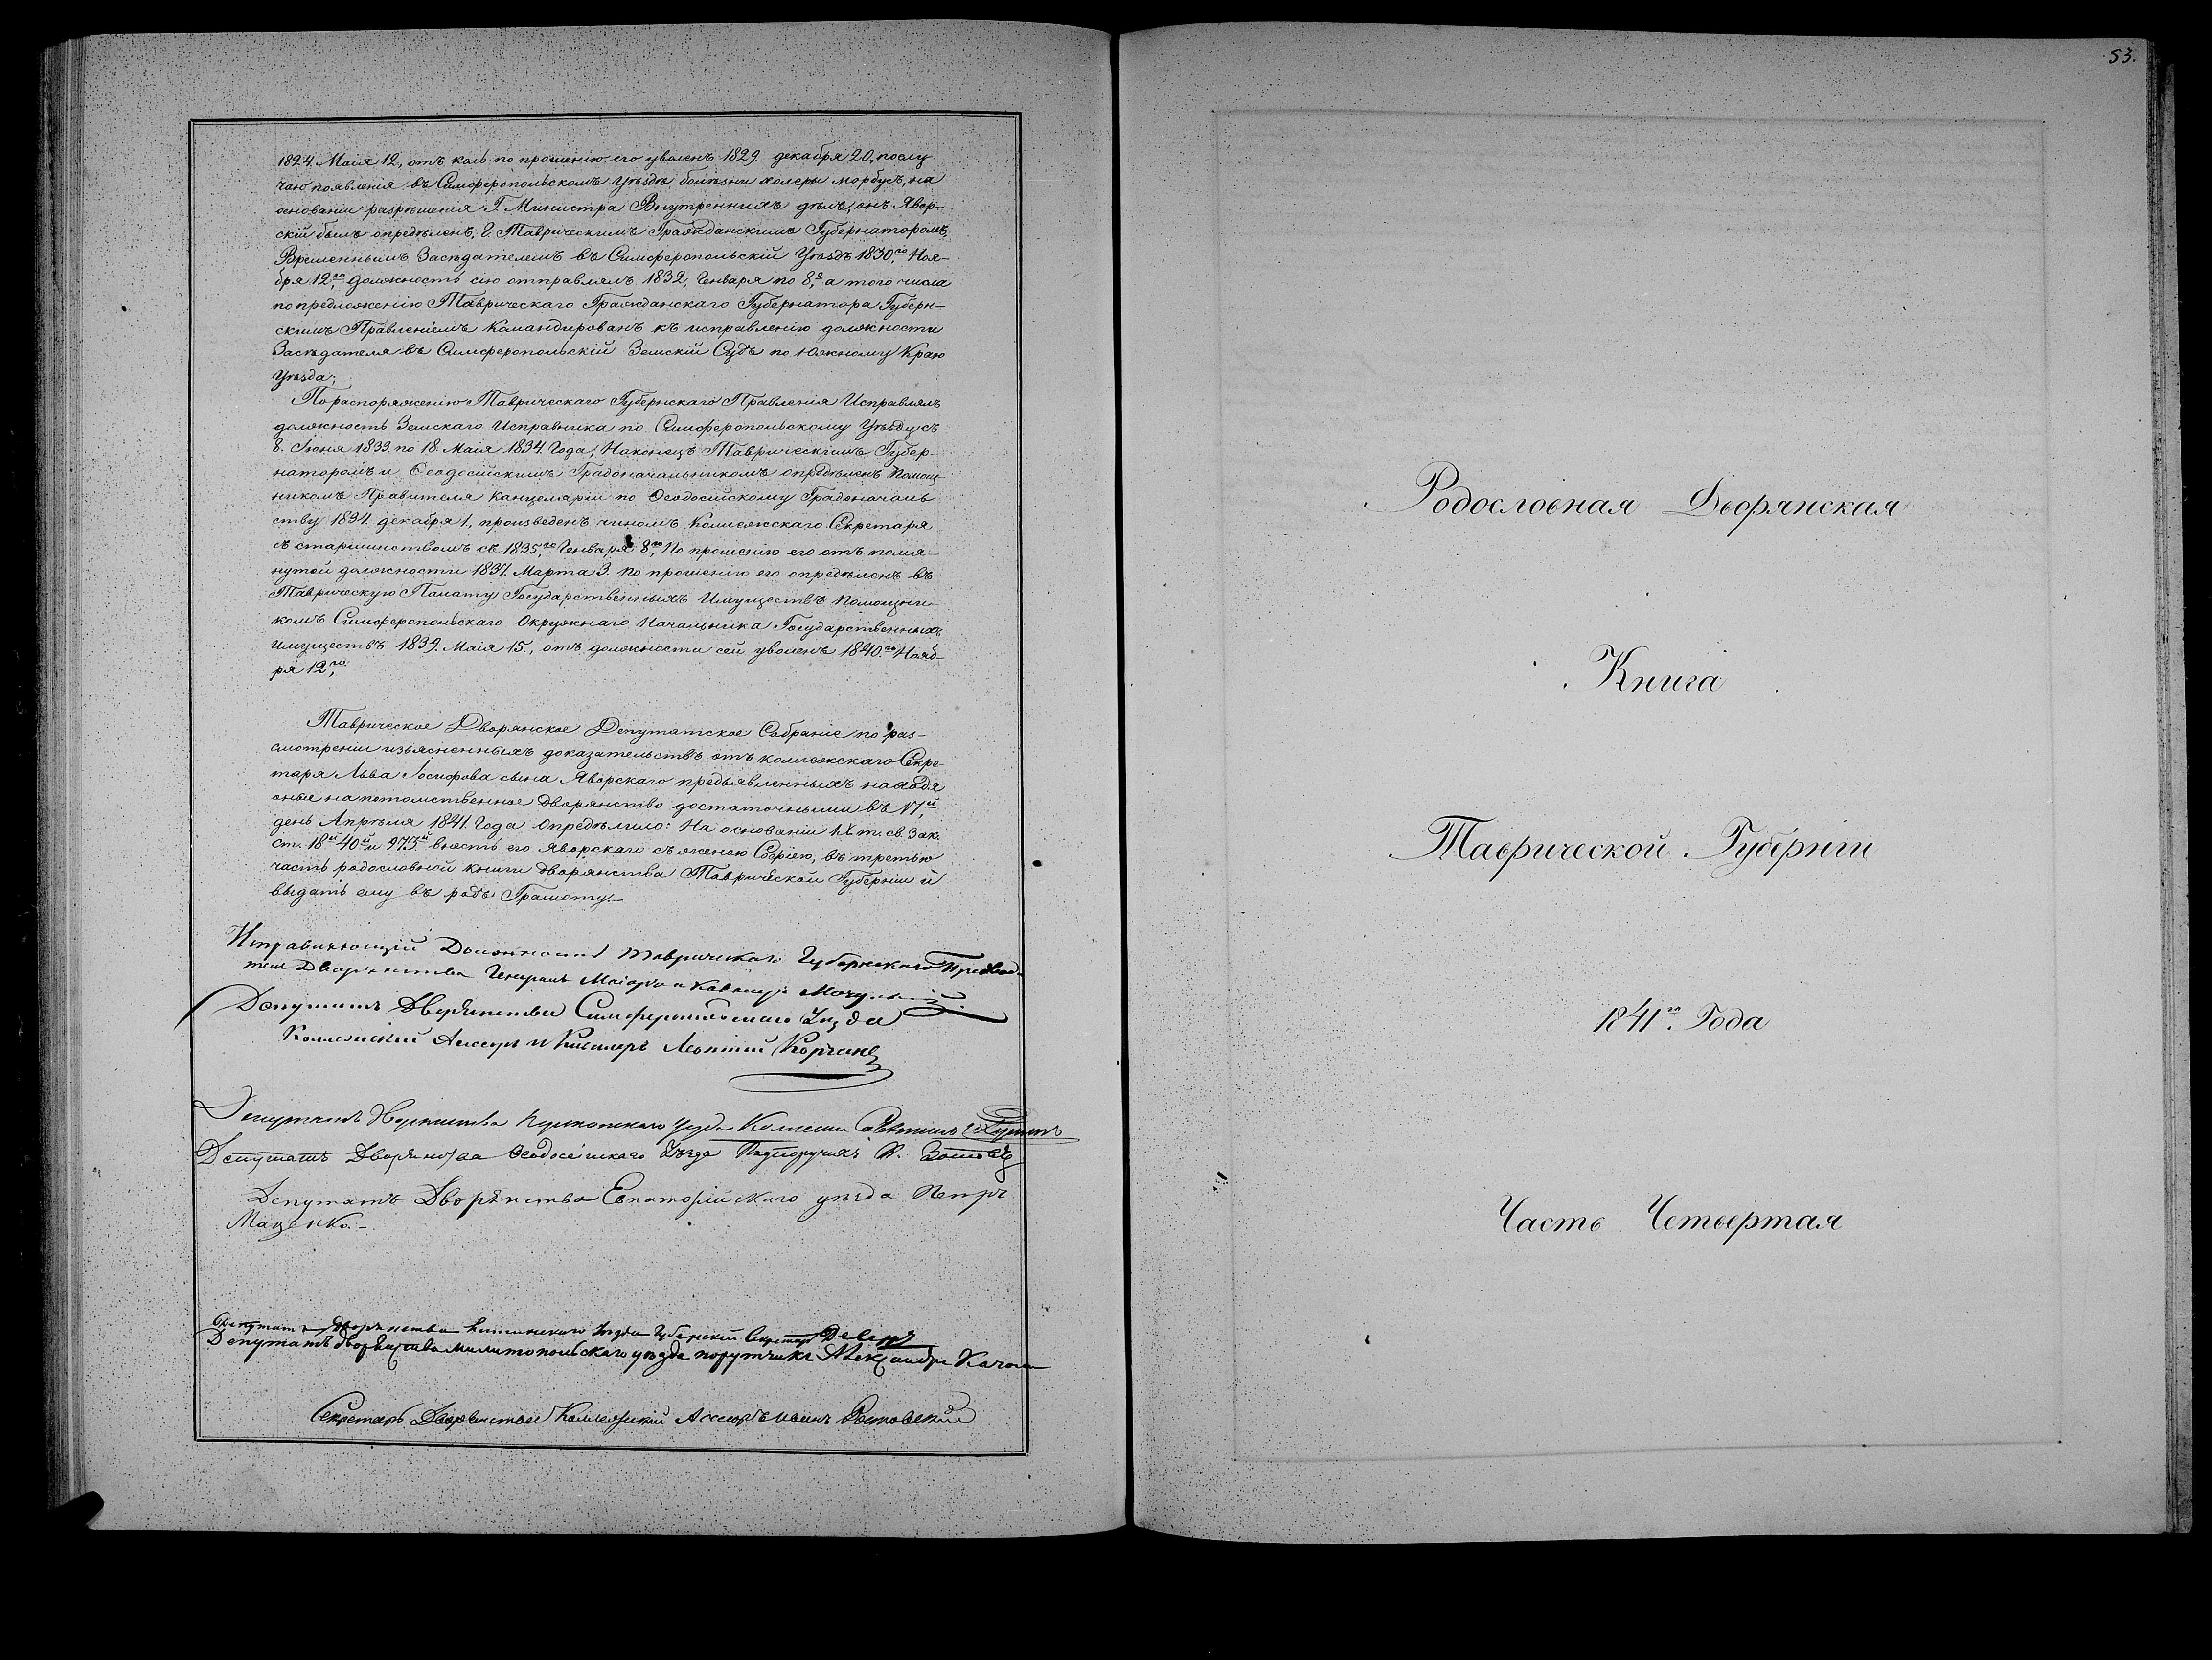 1824 Маія 12, отъ коль по прошенію его уволенъ 1829 декабря 20, послу
чаю появленія въ Симферопольскомъ Уѣздѣ болѣзни холеры морбусъ, на
основаніи разрѣшенія Г. Министра Внутреннихъ дѣлъ, онъ Явор-
скій былъ опредѣленъ, Г. Таврическимъ Гражданскимъ Губернаторомъ,
Временнымъ Засѣдателемъ въ Симферопольскій Уѣздъ 1830,го Ноя-
бря 12,го должность сію отправлялъ 1832, Генваря по 8,е а того числа
по предложенію Таврическаго Гражданскаго Губернатора Губерн-
скимъ Правленіемъ Командированъ къ исправленію должности
Засѣдателя въ Симферопольскій Земскій Судъ по Южному Краю
Уѣзда;
По распоряженію Таврическаго Губернскаго Правленія Исправлялъ
должность Земскаго Исправника по Симферопольскому Уѣзду съ
8. Іюня 1833 по 18 Маія 1834 Года, Наконецъ Таврическимъ Губер-
наторомъ и Ѳеодосійскимъ Градоначальникомъ опредѣленъ Помощ-
никомъ Правителя Канцеляріи по Ѳеодосійскому Градоначаль
ству 1834 декабря 1., произведенъ чиномъ Коллежскаго Секретаря
съ старшинствомъ съ 1835,го Генваря 8,го По прошенію его отъ помя-
нутой должности 1837. Марта 3. по прошенію его опредѣленъ въ
Таврическую Палату Государственныхъ Имуществъ Помощни-
комъ Симферопольскаго Окружнаго Начальника Государственныхъ
имуществъ 1839. Маія 15., отъ должности сей уволенъ 1840.го Нояб-
ря 12,го
Таврическое Дворянское Депутатское Собраніе по раз-
смотреніи изъясненныхъ доказательствъ отъ коллежскаго Секре-
таря Льва Іосифова сына Яворскаго предъявленныхъ находя
оныя на потомственное дворянство достаточными въ
день Апрѣля 1841 Года Опредѣлило: На основаніи IX т. св. Зак.
ст. 18й 40й и 973й внесть его Яворскаго съ женою Софіею, въ третью
часть родословной книги дворянства Таврической Губерніи и
выдать ему въ родъ Грамоту.-
Исправляющій Должность Таврическаго Губернскаго Предводи-
теля Дворянства Генералъ Маіоръ и Кавалеръ
Депутатъ Дворянства Симферопольскаго Уѣзда
Коллежскій Асесоръ и Кавалеръ Леонтій
Депутатъ Дворянства Перекопскаго Уезда
Депутатъ Дворянства Ѳеодосійскаго Уѣзда Подпоручикъ
Депутатъ Дворянства Евпаторійскаго уѣзда Петръ
Маценко.-
Депутатъ Дворянства Уѣзда Губернскій Секретарь
Депутатъ дворянства милитопольскаго уѣзда порутчикъ Александръ
Секретарь Дворянства Коллежскій Ассесоръ Иванъ
53.
Родословная Дворянская
Книга
Таврической Губерніи
1841го Года
Часть Четвертая